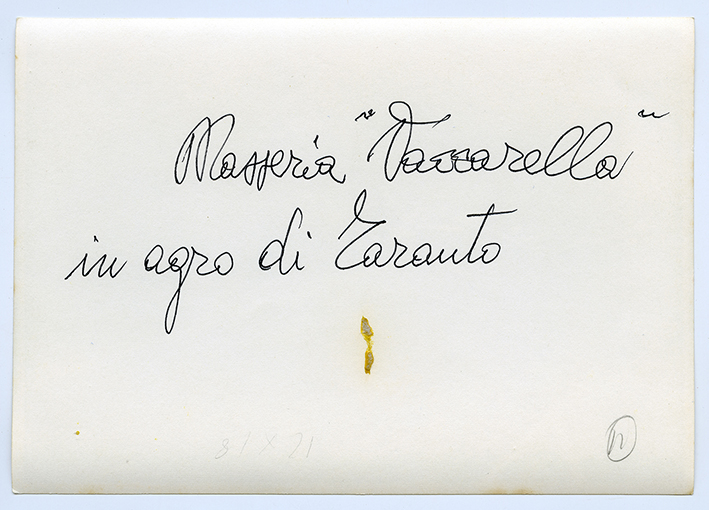 Masseria "Vaccarella"
in agro di Taranto